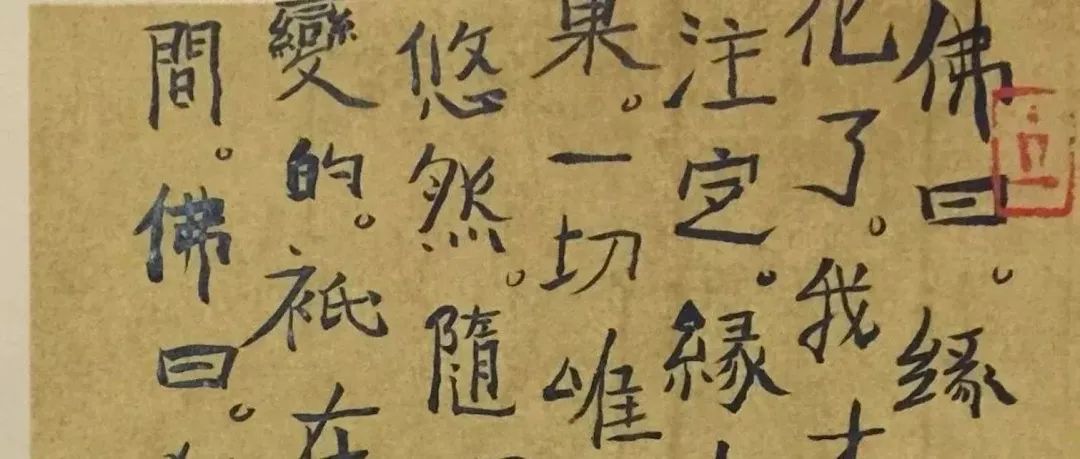 佛曰。緣
化了。我
注定。緣
果。一切唯
悠然。隨
變的。祇在
間。佛曰。